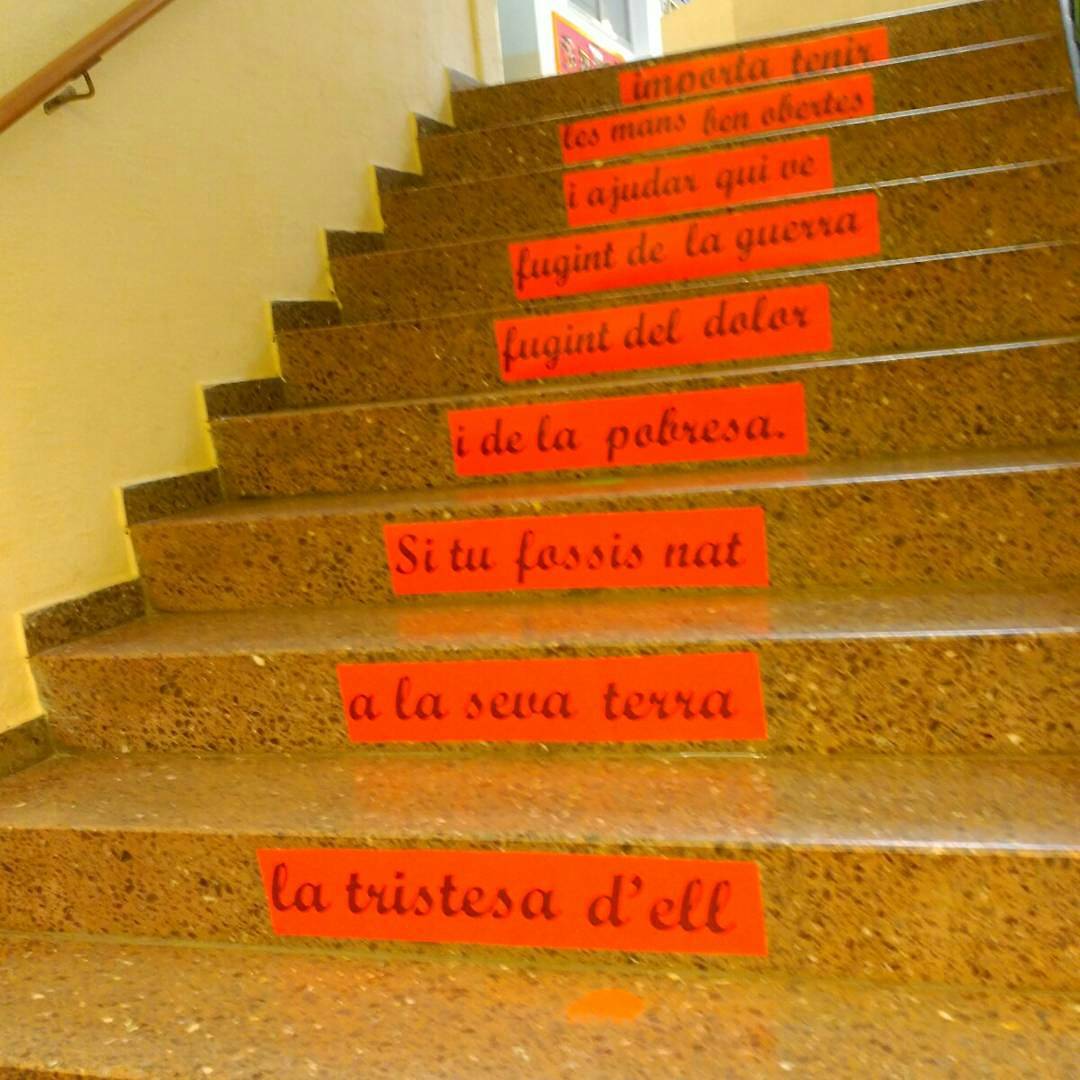 importa tenir
les mans ben obertes
i ajudar qui ve
fugint de la guerra
fugint del dolor
i de la pobresa.
Si tu fossis nat
a la seva terra
la tristesa d'ell